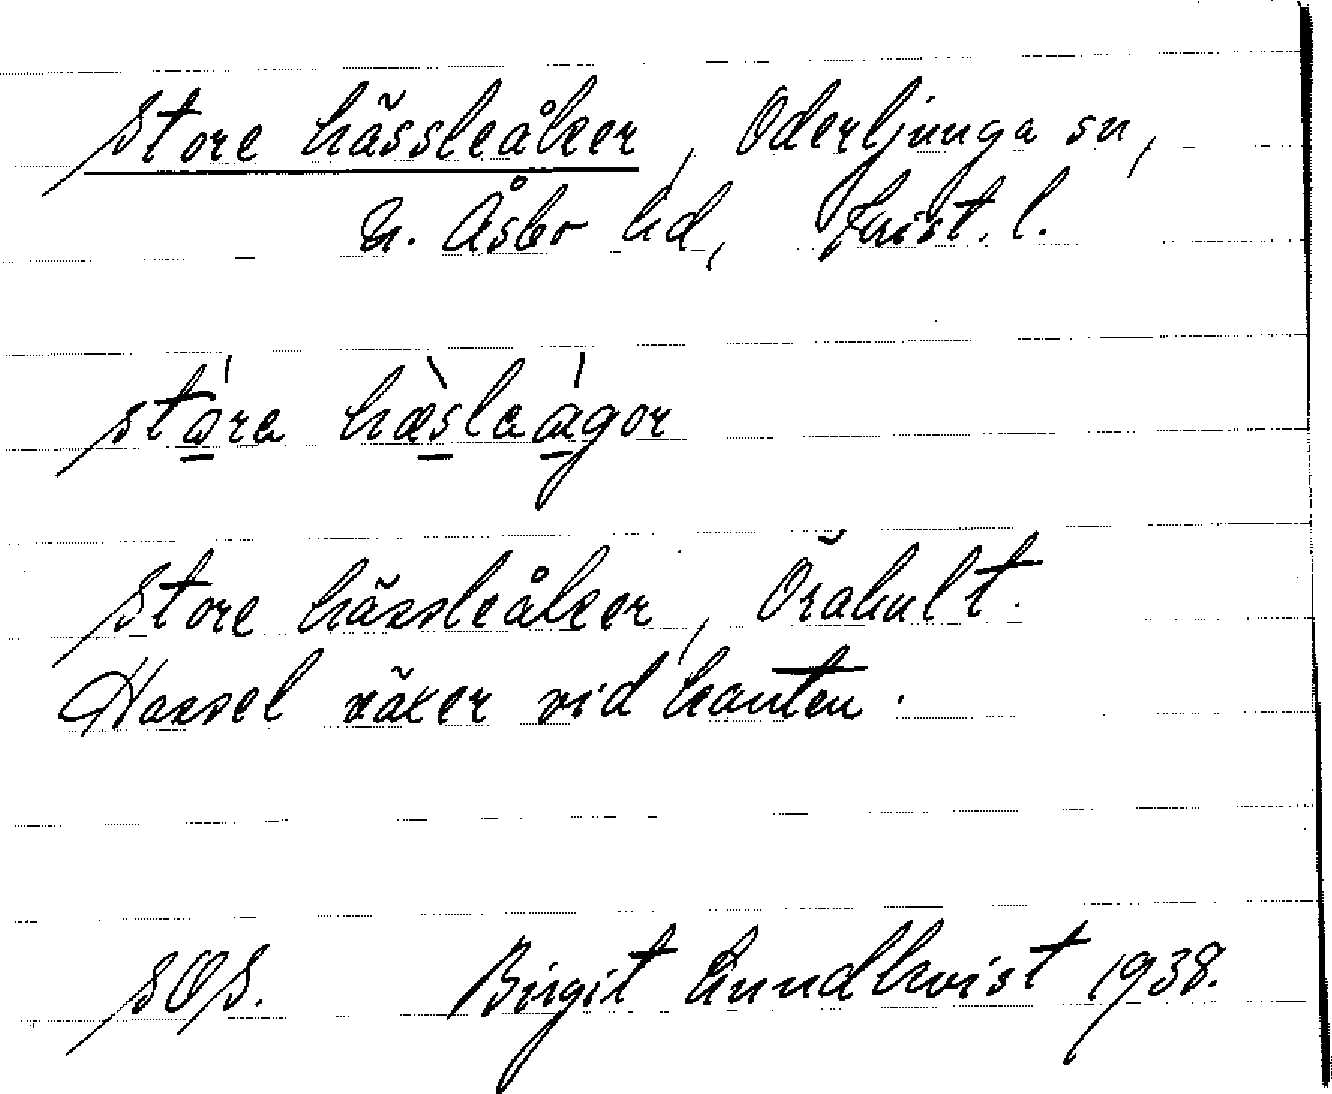 Store hässleåker, Oderljunga sn,
N. Åsbo hd, Krist. l.
stóra hæ̀slaágor
Store hässleåker, Örahult.
Hassel växer vid kanten.
SOS. Birgit Lundkvist 1938.